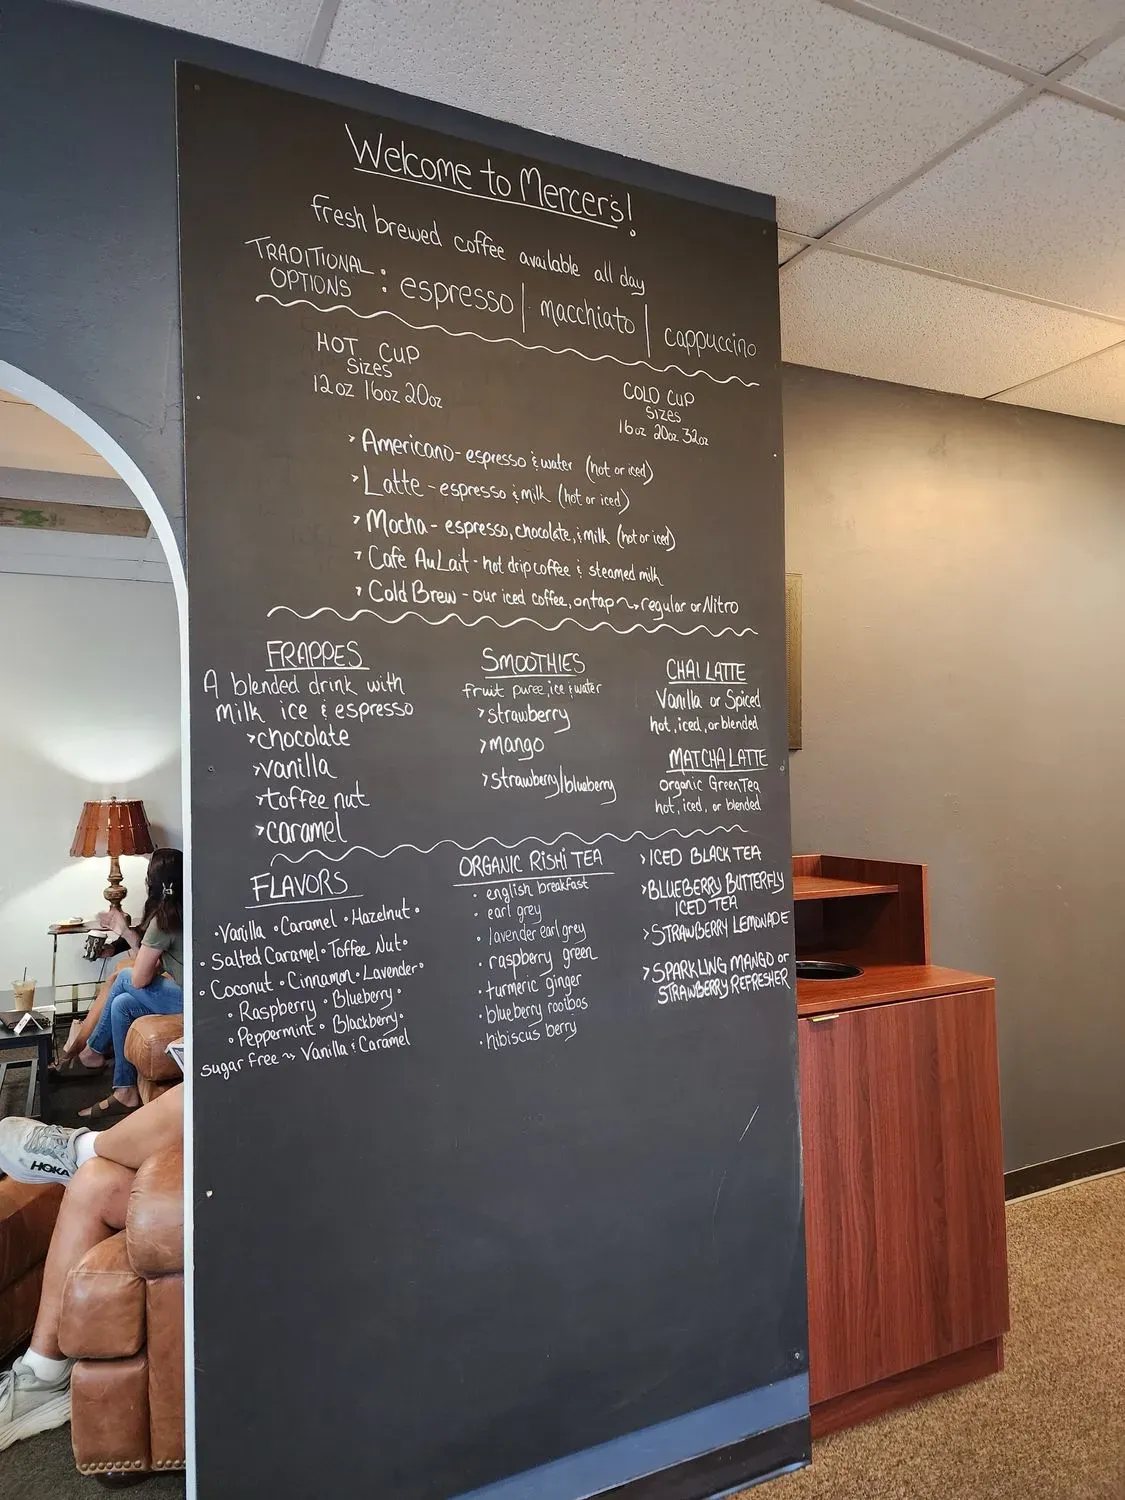 Welcome to Mercer's!
fresh brewed coffee available all day
TRADITIONAL OPTIONS : espresso | macchiato | cappuccino
HOT CUP
Sizes
12oz 16oz 20oz
COLD CUP
SIZES
16oz 20oz 32oz
> Americano - espresso & water (hot or iced)
> Latte - espresso & milk (hot or iced)
> Mocha - espresso, chocolate, & milk (hot or iced)
> Cafe Au Lait - hot drip coffee & steamed milk
> Cold Brew - our iced coffee, on tap ~> regular or Nitro
FRAPPES
A blended drink with
milk ice & espresso
>chocolate
>vanilla
>toffee nut
>caramel
SMOOTHIES
fruit puree, ice & water
>strawberry
>mango
>strawberry/blueberry
CHAI LATTE
Vanilla or Spiced
hot, iced, or blended
MATCHA LATTE
organic Green Tea
hot, iced, or blended
FLAVORS
•Vanilla •Caramel •Hazelnut •
• Salted Caramel • Toffee Nut •
• Coconut • Cinnamon • Lavender •
• Raspberry • Blueberry •
• Peppermint • Blackberry •
sugar free ~> Vanilla & Caramel
ORGANIC RISHI TEA
• english breakfast
• earl grey
• lavender earl grey
• raspberry green
• turmeric ginger
• blueberry rooibos
• hibiscus berry
>ICED BLACK TEA
>BLUEBERRY BUTTERFLY
ICED TEA
>STRAWBERRY LEMONADE
>SPARKLING MANGO or
STRAWBERRY REFRESHER
HOKA